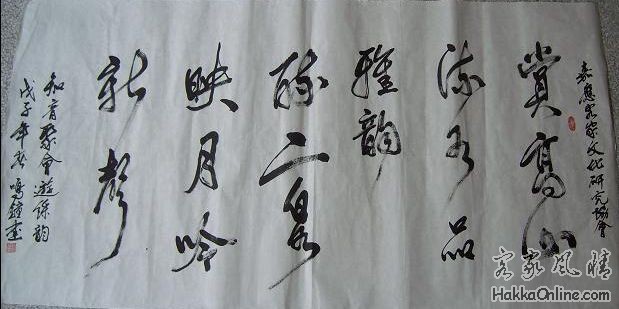 嘉應客家文化研究協會
賞高山
流水品
雅韻
二泉
映月吟
新聲
知音聚會遊韵
戊子年鳴鐘書
客家風情
HakkaOnline.com